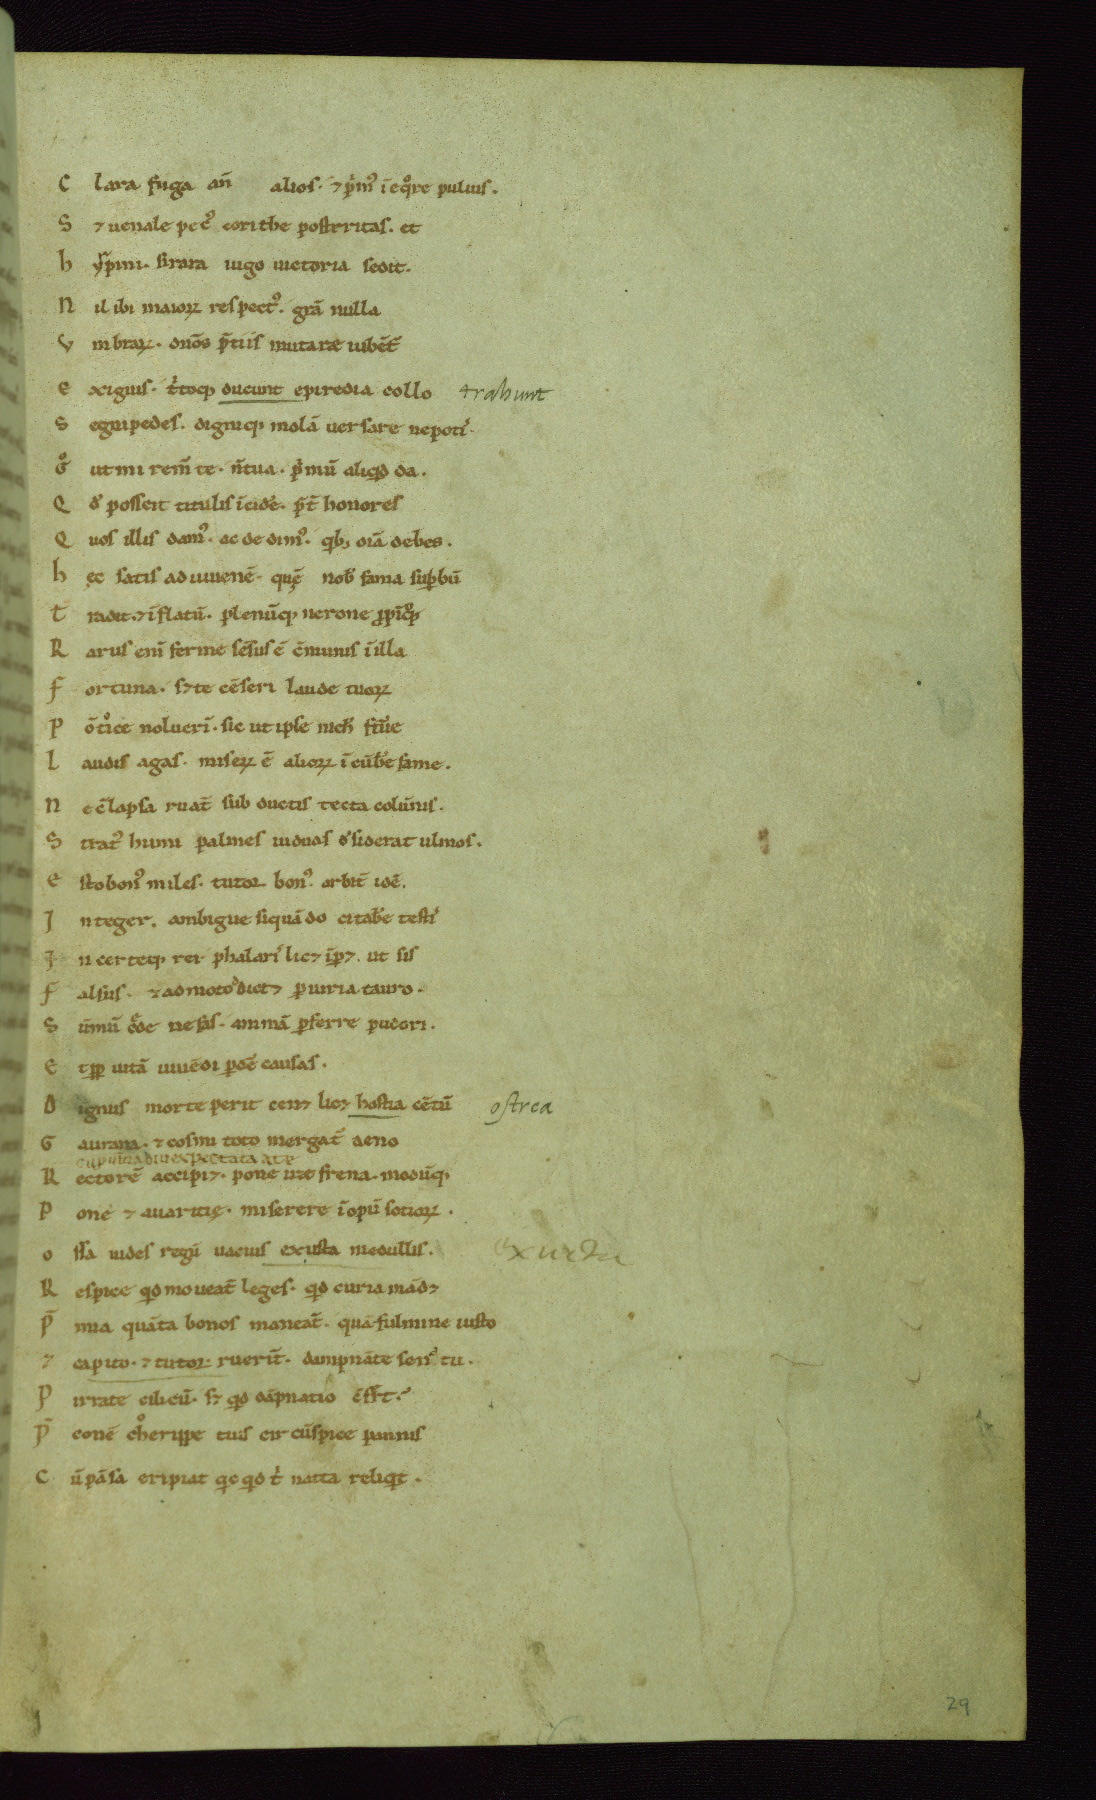 C lara fuga an̄ alios. ⁊ p̍m᷒ ī eq̊re puluis.
S ⁊ uenale pec᷒ corithe posteritas. et
h yrpini. si rara iugo uictoria sedit.
N il ibi maioꝝ respect᷒. grā nulla
V mbraꝝ. dn̄os p̄tiis mutare iubēt᷑
e xiguis. t̍toqꝫ ducunt epiredia collo trahunt
S egnipedes. digniqꝫ molā uersare nepotı᷒.
g̊ ut mi rem̄ te. n̄ tua. p̍mū aliqd da.
Q d̕ possert titulis īcid̕e. p̄t̄ honores
Q uos illis dam᷒. ac dedim᷒. qbꝫ oīa debes.
h ęc satis ad iuuenē. quę̄ nob̕ fama supbū
t radit. ⁊ īflatū. plenūqꝫ nerone ꝓpīq̊ꝫ
R arus enī ferme sēsus ē cōmunis ī illa
f ortuna. sꝫ te cēseri laude tuoꝝ
P ōtice nolueri. sic ut ipse nich̕ fut̕e
L audis agas. miseꝝ ē alioꝝ īcūb̕e fame.
N e cōlapsa ruāt sub ductis tecta colūnis.
S trat᷒ humi palmes uiduas d̕siderat ulmos.
e sto bon᷒ miles. tutor bon᷒. arbit̄ idē.
I nteger. ambigue siquādo citab̕e testı᷒
I ncerteqꝫ rei. phalari᷒ licꝫ īpꝫ. ut sis
f alsus. ⁊ admoto dictꝫ piuria tauro.
S ūmū c̄de nefas. animā pferre pudori.
E t ꝓp uitā uiuēdi pdē causas.
D ignus morte perit cenꝫ licꝫ hostia cētū ostrea
G aurana. ⁊ cosmi toto mergat᷑ aeno
expectata
R ectorē accipiꝫ. pone ire frena. modūqꝫ
P one ⁊ auaritię. miserere īopū sotioꝝ.
O ssa uides regū uacuis exusta medullis.
R espice qd moueāt leges. qd curia mādꝫ
P̄ mia quāta bonos maneāt. quā fulmine iusto
⁊ capito. ⁊ tutor ruerīt. dampnāte senat᷒ tu.
P irrate cilicū. sꝫ qd dāpnatio cōfert.
P̄ conē cherippe tuis circūspice pannis
C ū pāsa eripiat qcqd t̍ natta reliqt.
29